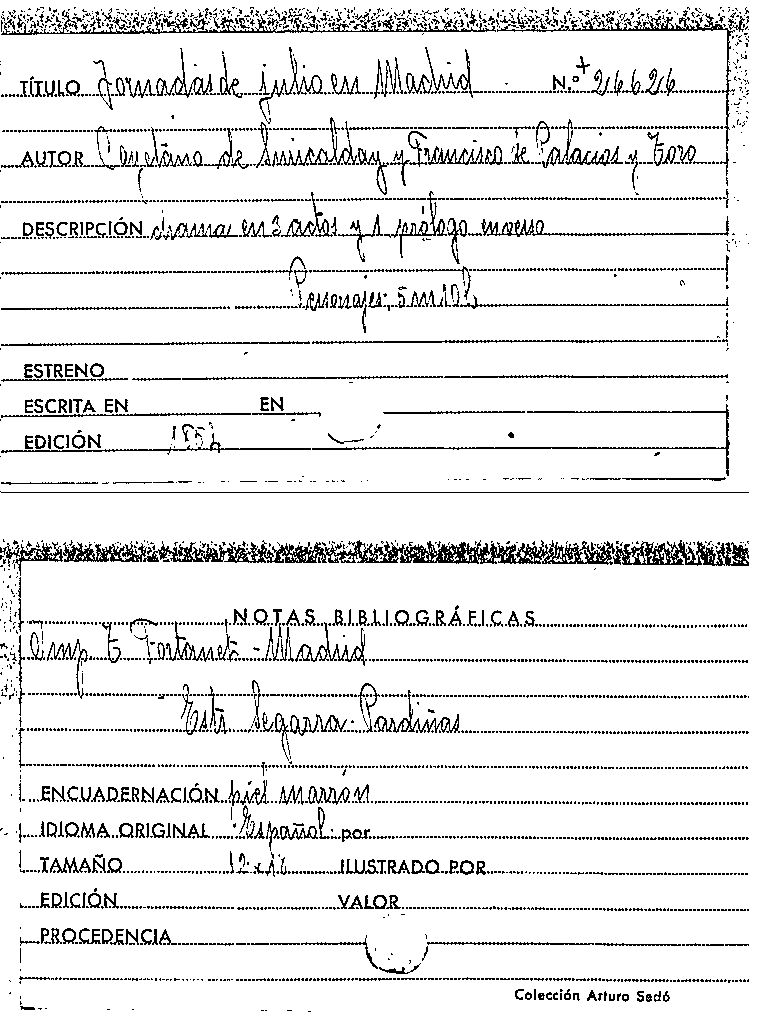 TÍTULO Jornadas de julio en Madrid N.º + 26626
AUTOR Cayetano de Suricalday y Francisco de Palacios y Toro
DESCRIPCIÓN drama en 3 actos y 1 prólogo en verso
Personajes: 5 m 10 h
ESTRENO
ESCRITA EN EN
EDICIÓN 1854
NOTAS BIBLIOGRÁFICAS
Imp T Fortanet - Madrid
Estr Segarra - Pardiñas
ENCUADERNACIÓN piel marrón
IDIOMA ORIGINAL Español por
TAMAÑO 12 x ILUSTRADO POR
EDICIÓN VALOR
PROCEDENCIA
Colección Arturo Sedó